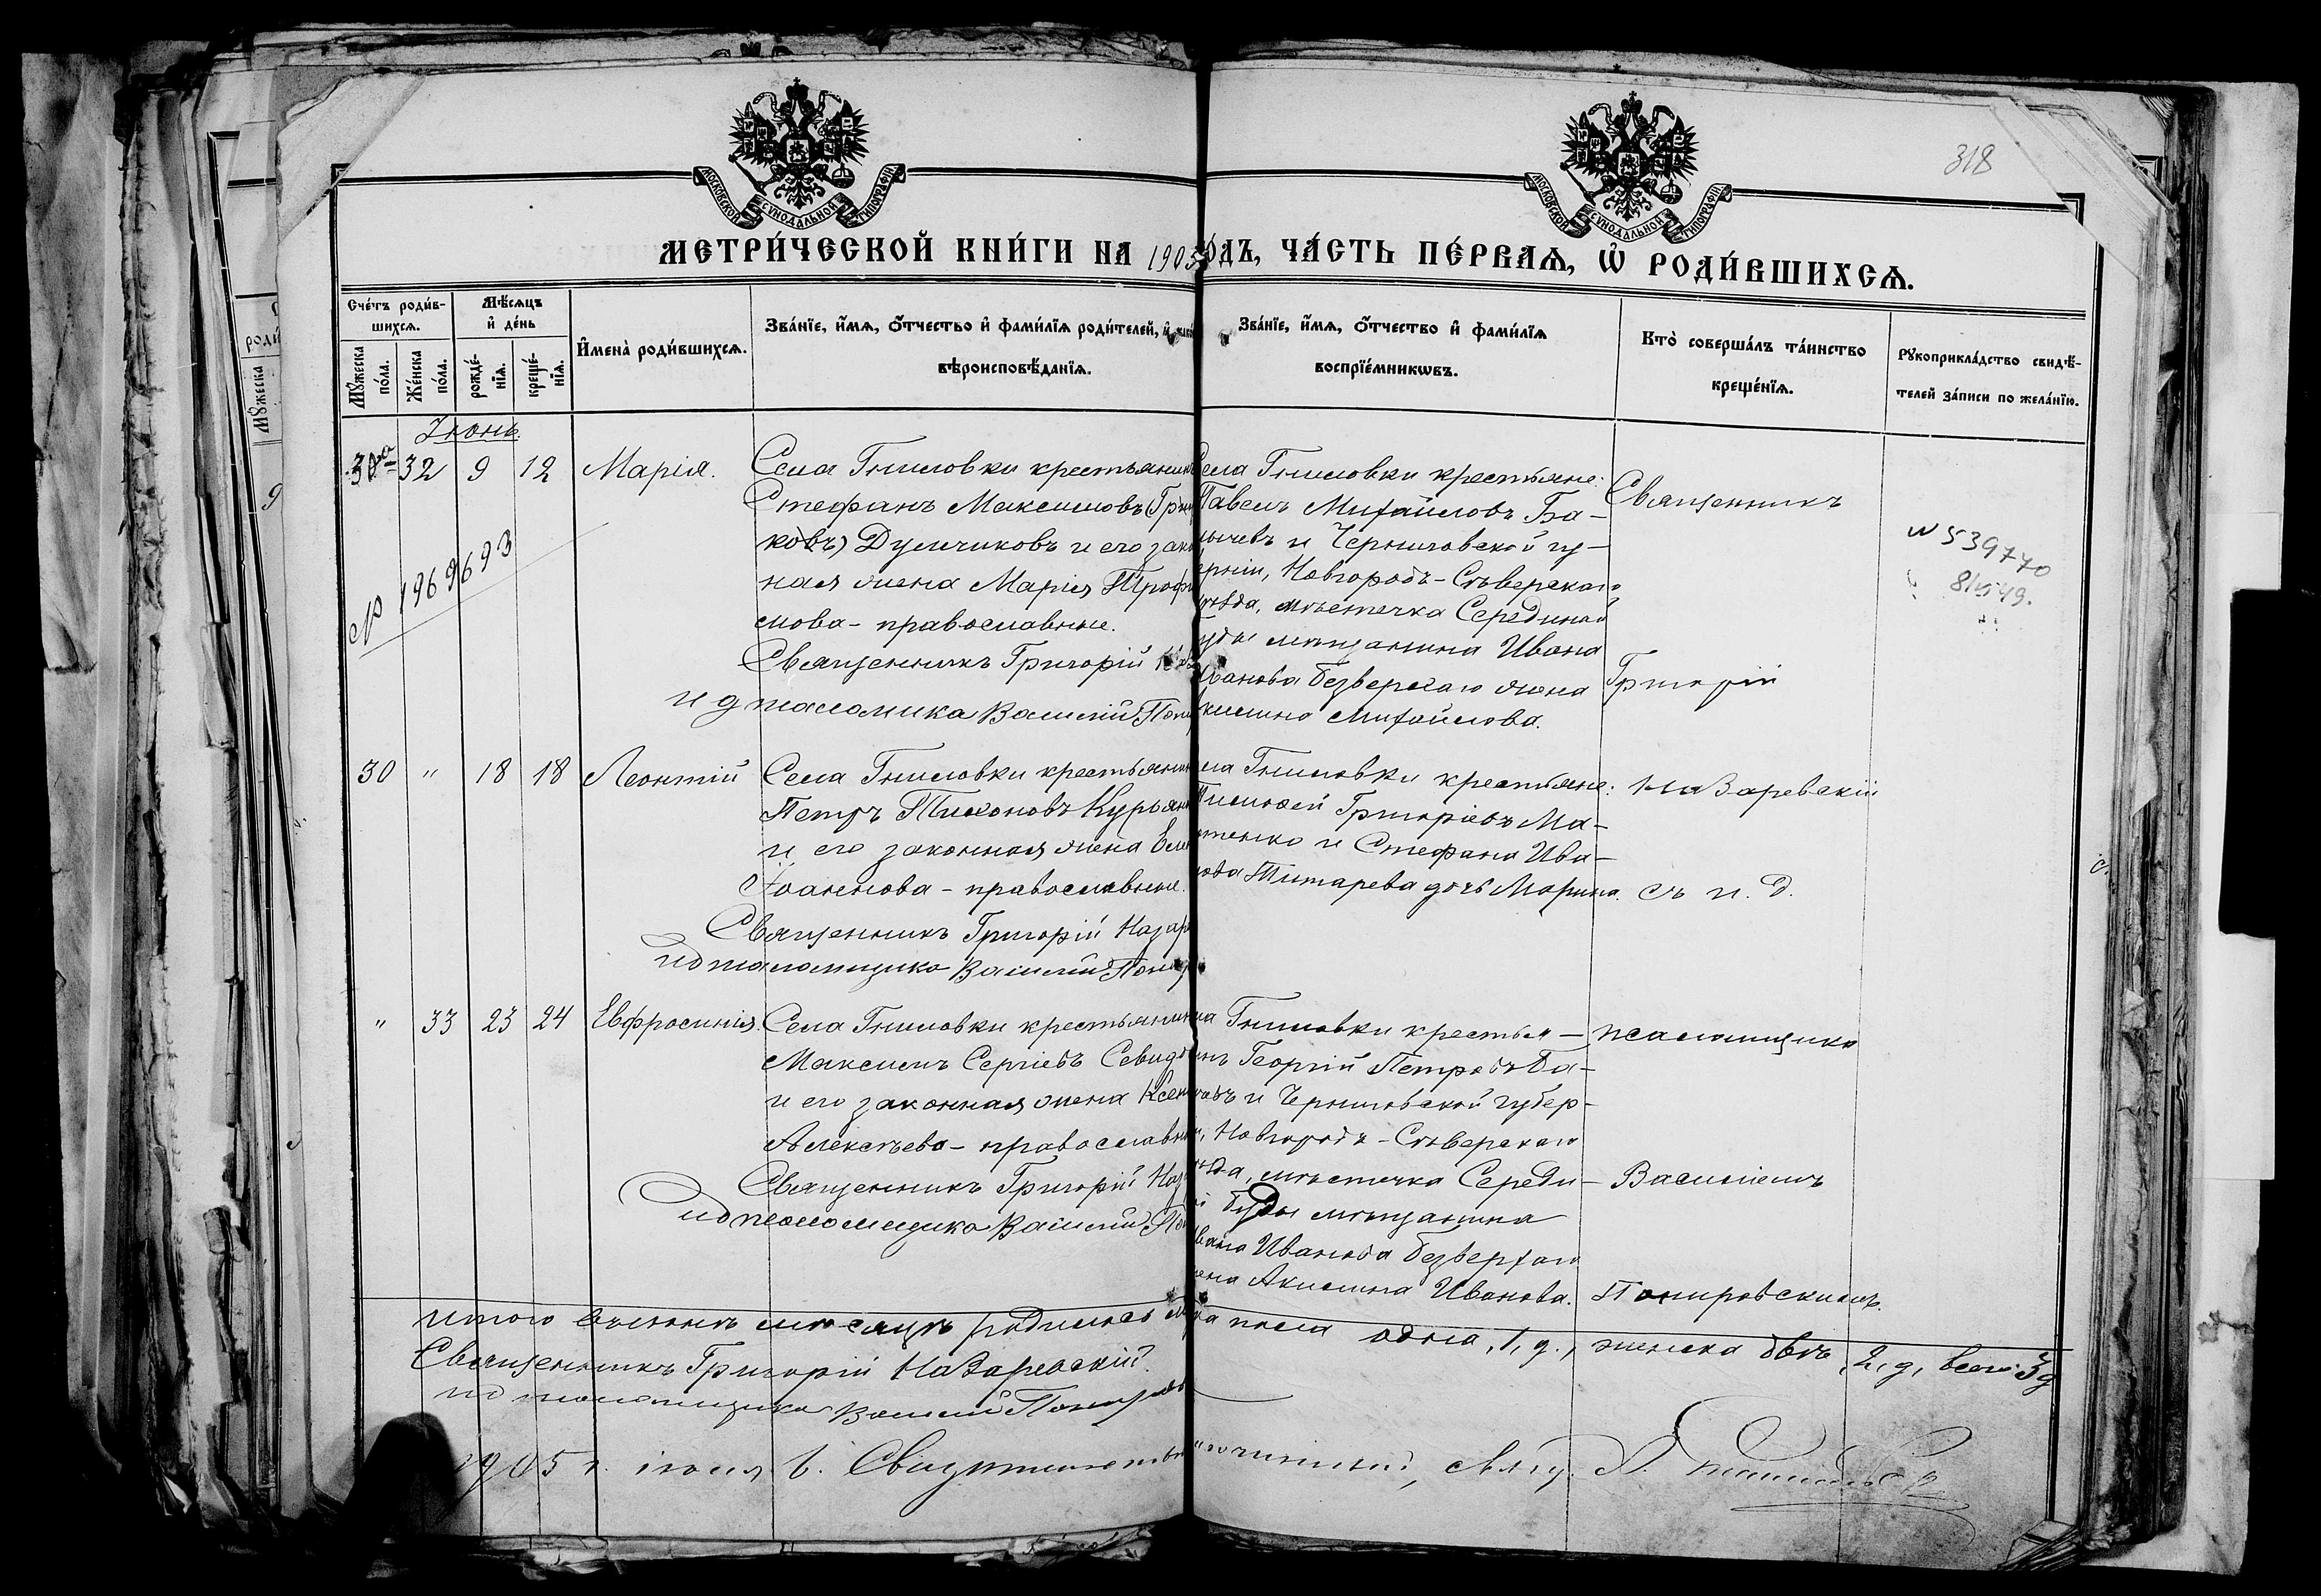 318
МОСКОВСКОЙ СѴНОДАЛЬНОЙ ТИПОГРАФІИ
МОСКОВСКОЙ СѴНОДАЛЬНОЙ ТИПОГРАФІИ
МЕТРИ́ЧЕСКОЙ КНИ́ГИ НА 1905
ОДЪ, ЧА́СТЬ ПЕ́РВАѦ, Ѡ РОДИ́ВШИХСѦ.
Сче́тъ роди́в-
шихсѧ.
Мꙋжеска по́ла.
Же́нска по́ла.
Мѣ́сѧцъ
и҆ де́нь
рожде́-
нїѧ.
креще́-
нїѧ.
И҆мена̀ роди́вшихсѧ.
Зва́нїе, и҆́мѧ, ѻ҆́тчество и҆ фами́лїѧ роди́телей, и҆
вѣроисповѣ́данїѧ.
Зва́нїе, и҆́мѧ, ѻ҆́тчество и҆ фами́лїѧ
воспрїе́мникѡвъ.
Кто̀ соверша́лъ та́инство
креще́нїѧ.
Рꙋкоприкла́дство свидѣ́-
телей за́писи по жела́нїю.
Іюнь.
32 9 12 Марія.
Села Гниловки крестьянин
Стефанъ Максимовъ (Гри
ковъ) Думчиковъ и его зако
ная жена Марія Трофи
мова - православные.
Священникъ Григорій
и д псаломщика Василій Пони
№ 1969693
ела Гниловки крестьяне:
Павелъ Михайловъ Ба-
ычевъ и Черниговской гу-
ерніи, Новгородъ-Сѣверскаго
ѣзда, мѣстечка Середины
уды мѣщанина Ивана
Иванова Безверхаго жена
килина Михайлова.
Священникъ
Григорій
N 53970
30 " 18 18 Леонтій
Села Гниловки крестьянин
Петръ Тихоновъ Курьян
и его законная жена Еле
Іоаннова - православные.
Священникъ Григорій Назар
ид псаломщика Василій Пони
ела Гниловки крестьяне:
Тимофей Григоріевъ Ма-
тенко и Стефана Ива-
нова Титарева дочь Марина.
Назаревскій
съ и. д.
" 33 23 24 Евфросинія.
Села Гниловки крестьянин
Максимъ Сергіевъ Севидо
и его законная жена Ксен
Алексѣева - православны
Священникъ Григорій Наз
ид псаломщика Василій По
ла Гниловки крестья-
инъ Георгій Петровъ Ба-
чевъ и Черниговской губер-
и, Новгородъ-Сѣверскаго
ѣзда, мѣстечка Середи-
й Буды мѣщанина
вана Иванова Безверхаго
ена Акилина Иванова.
псаломщика
Василіемъ
Понировскимъ.
Итого въ іюнѣ мѣсяцѣ родилось м
ка пола одна, 1, д., женска двѣ, 2, д, всего 3 д
Священникъ Григорій Назаревскій.
ид псаломщика Василій Пониров
1905 г. іюля 6. Свидѣтельств
чинный, свящ.